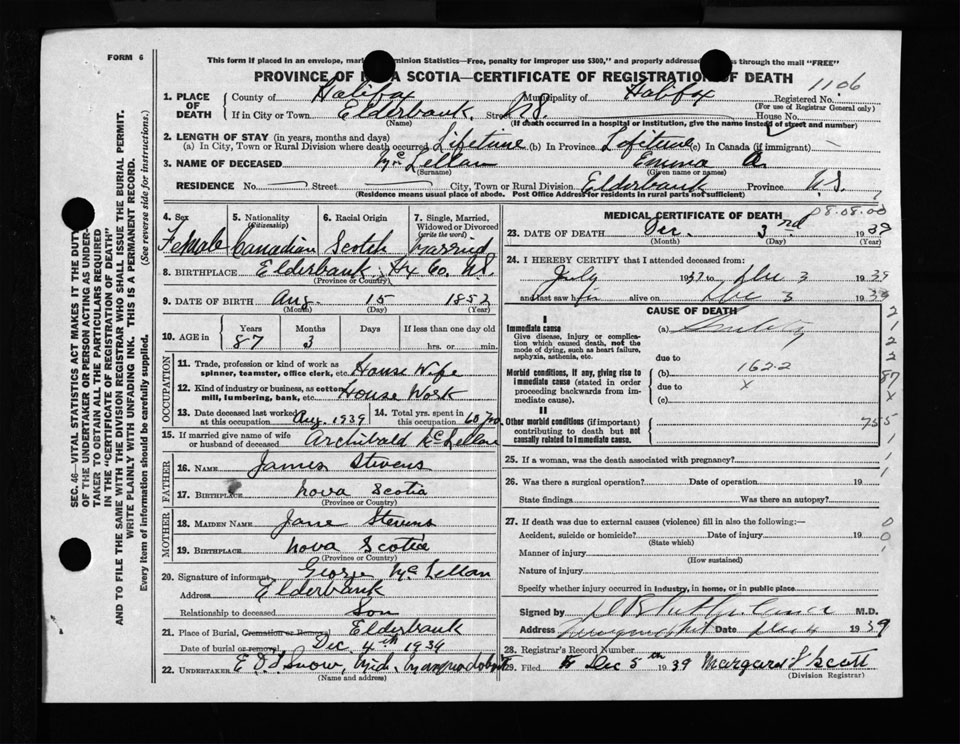 FORM 6
This form if placed in an envelope, mar Dominion Statistics—Free, penalty for improper use $300," and properly addresse ss through the mail "FREE"
PROVINCE OF N A SCOTIA—CERTIFICATE OF REGISTRATION OF DEATH
1106
1. PLACE OF DEATH County of Halifax Municipality of Halifax Registered No.
(For use of Registrar General only)
If in City or Town Elderbank, Street N.S. House No.
(Name) (If death occurred in a hospital or institution, give the name instead of street and number)
2. LENGTH OF STAY (in years, months and days)
(a) In City, Town or Rural Division where death occurred Lifetime (b) In Province Lifetime (c) In Canada (if immigrant) —
3. NAME OF DECEASED McLellan Emma A.
(Surname) (Given name or names)
RESIDENCE No. Street City, Town or Rural Division Elderbank Province N.S.
(Residence means usual place of abode. Post Office Address for residents in rural parts not sufficient)
4. Sex Female
5. Nationality (Citizenship) Canadian
6. Racial Origin Scotch
7. Single, Married, Widowed or Divorced (write the word) Married
8. BIRTHPLACE Elderbank, Hx Co. N.S.
(Province or Country)
9. DATE OF BIRTH Aug. 15 1852
(Month) (Day) (Year)
10. AGE in Years Months Days If less than one day
87 3 hrs. or min.
OCCUPATION
11. Trade, profession or kind of work as spinner, teamster, office clerk, etc. House Wife
12. Kind of industry or business, as cotton mill, lumbering, bank, etc. House Work
13. Date deceased last worked at this occupation Aug. 1939
14. Total yrs. spent in this occupation 60 yrs.
15. If married give name of wife or husband of deceased Archibald McLellan
FATHER
16. NAME James Stevens
17. BIRTHPLACE Nova Scotia
(Province or Country)
MOTHER
18. MAIDEN NAME Jane Stevens
19. BIRTHPLACE Nova Scotia
(Province or Country)
20. Signature of informant George McLellan
Address Elderbank
Relationship to deceased Son
21. Place of Burial, Cremation or Removal Elderbank
Date of burial or removal Dec 4th 1939
22. UNDERTAKER
(Name and address)
MEDICAL CERTIFICATE OF DEATH
08.08.00
23. DATE OF DEATH Dec. 3rd 1939
(Month) (Day) (Year)
24. I HEREBY CERTIFY that I attended deceased from:
July 1937 to Dec 3 1939
and last saw h alive on Dec 3 1939
CAUSE OF DEATH
I
Immediate cause (a) Senility
Give disease, injury or complication which caused death, not the mode of dying, such as heart failure, asphyxia, asthenia, etc.
due to
Morbid conditions, if any, giving rise to immediate cause (stated in order proceeding backwards from immediate cause). (b) 162.2
due to x
(c)
II
Other morbid conditions (if important) contributing to death but not causally related to immediate cause.
25. If a woman, was the death associated with pregnancy?
26. Was there a surgical operation? Date of operation 19
State findings Was there an autopsy?
27. If death was due to external causes (violence) fill in also the following:—
Accident, suicide or homicide? Date of injury 19
(State which)
Manner of injury
(How sustained)
Nature of injury
Specify whether injury occurred in industry, in home, or in public place
Signed by M.D.
Address Date Dec 4 1939
28. Registrar's Record Number
29. Filed Dec 5th 1939 Margaret Scott
(Division Registrar)
SEC. 46—VITAL STATISTICS ACT MAKES IT THE DUTY
OF THE UNDERTAKER OR PERSON ACTING AS UNDERTAKER TO OBTAIN ALL THE PARTICULARS REQUIRED
IN THE "CERTIFICATE OF REGISTRATION OF DEATH"
AND TO FILE THE SAME WITH THE DIVISION REGISTRAR WHO SHALL ISSUE THE BURIAL PERMIT.
WRITE PLAINLY WITH UNFADING INK. THIS IS A PERMANENT RECORD.
Every item of information should be carefully supplied. (See reverse side for instructions.)